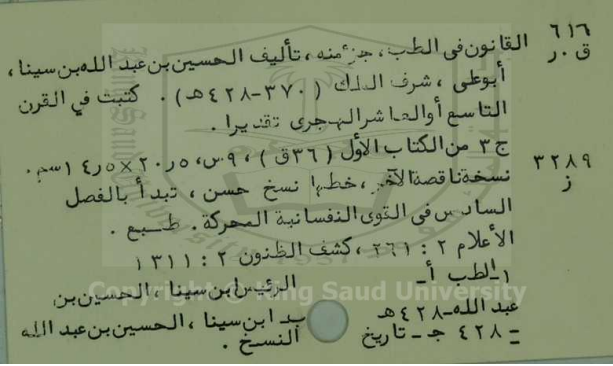 ٦١٦
ق ٠ ر
القانون فى الطب، جزء منه، تأليف الحسين بن عبد الله بن سينا،
أبوعلى، شرف الملك (٣٧٠-٤٢٨هـ). كتبت في القرن
التاسع أوالعاشر الهجرى تقديرا.
ج ٣ من الكتاب الأول (٣٦ق)، ٩س، ٥ر٢٠×٥ر١٤سم.
٣٢٨٩
ز
نسخة ناقصة الآخر، خطها نسخ حسن، تبدأ بالفصل
السادس فى القوى النفسانية المحركة. طبع.
الأعلام ٢: ٢٦١، كشف الظنون ٢: ١٣١١
١-الطب أ-
الرئيس ابن سينا، الحسين بن
عبد الله-٤٢٨هـ
ب- ابن سينا، الحسين بن عبد الله
-٤٢٨ ج- تاريخ
النسخ.
Copyright © King Saud University